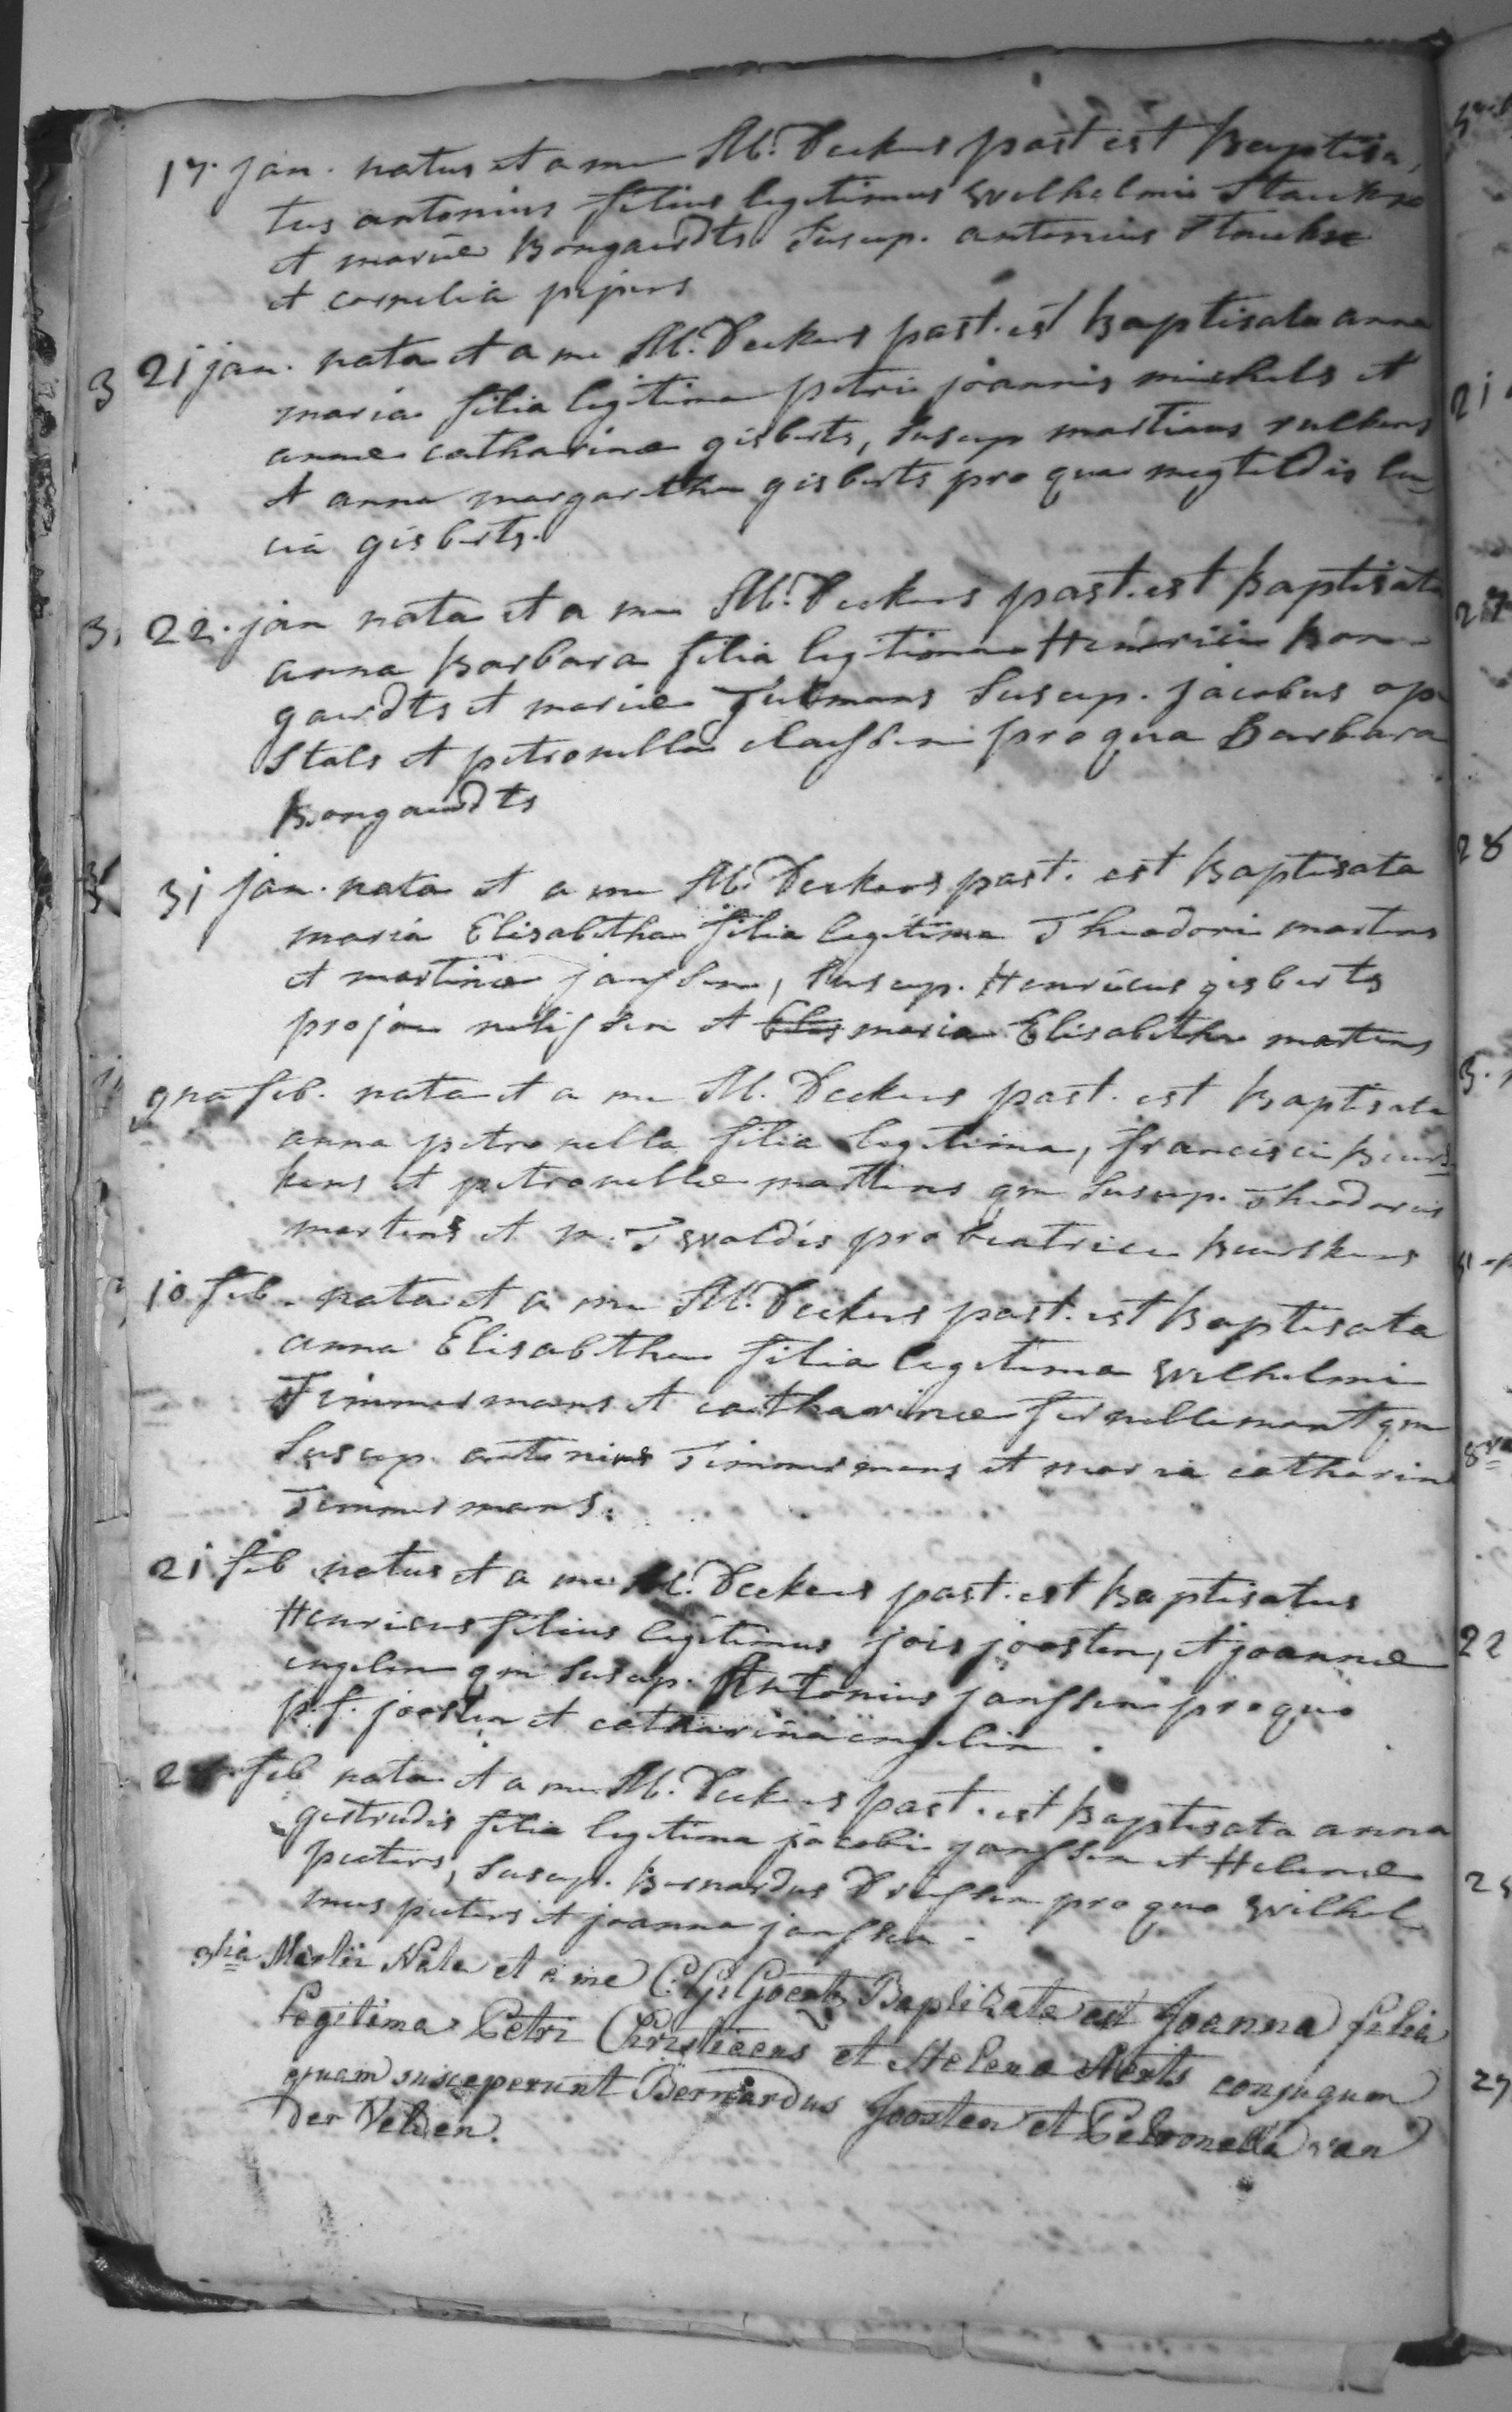 17. jan. natus et a me M. Deckers past est baptisa,
tus antonius filius legitimus Wilhelmi
et mariæ Bongaerdts Suscep. antonius
et cornelia pijpers
21 jan. nata et a me M. Deckers past. est baptisata anna
maria filia legitima petri joannis michels et
annæ catharinæ gisberts, Suscep martinus
et anna margaretha gisberts pro qua megteldis lu„
cia gisberts.
22. jan nata et a me M. Deckers past. est baptisata
anna barbara filia legitima Henrici bon„
gaerdts et mariæ Suscep. jacobus op
Stals et petronella clahsen pro qua Barbara
bongaerdts
31 jan. nata et a me M. Deckers past. est baptisata
maria Elisabetha filia legitima Theodori martens
et martinæ janssen, Suscep. Henricus gisberts
pro jan nelissen et maria Elisabetha martens
9na feb. nata et a me M. Deckers past. est baptisata
anna petronella filia legitima, francisci beurs„
kens et petronellæ martens qm Suscep. Theodorus
martens et m. pro beatrice beurskens
10 feb. nata et a me M. Deckers past. est baptisata
anna Elisabetha filia legitima Wilhelmi
Timmermans et catharinæ qm
Suscep. antonius Timmermans et maria catharina
Timmermans.
21 feb natus et a me M. Deckers past. est baptisatus
Henricus filius legitimus jois joosten, et joannæ
engelen qm Suscep. Antonius janssen pro quo
p. f. joosten et catharina engelen.
feb nata et a me M. Deckers past. est baptisata anna
gertrudis filia legitima jacobi janssen et Helenæ
peeters, Suscep. bernardus Driessen pro quo Wilhel„
mus peeters et joanna janssen.
3tia Martii Nata et a me C. G. Goerts Baptizata est Joanna filia
legitima Petri Christiaens et Helena Aerts conjugum
quam susceperunt Bernardus Joosten et Petronella van
Der Velden.